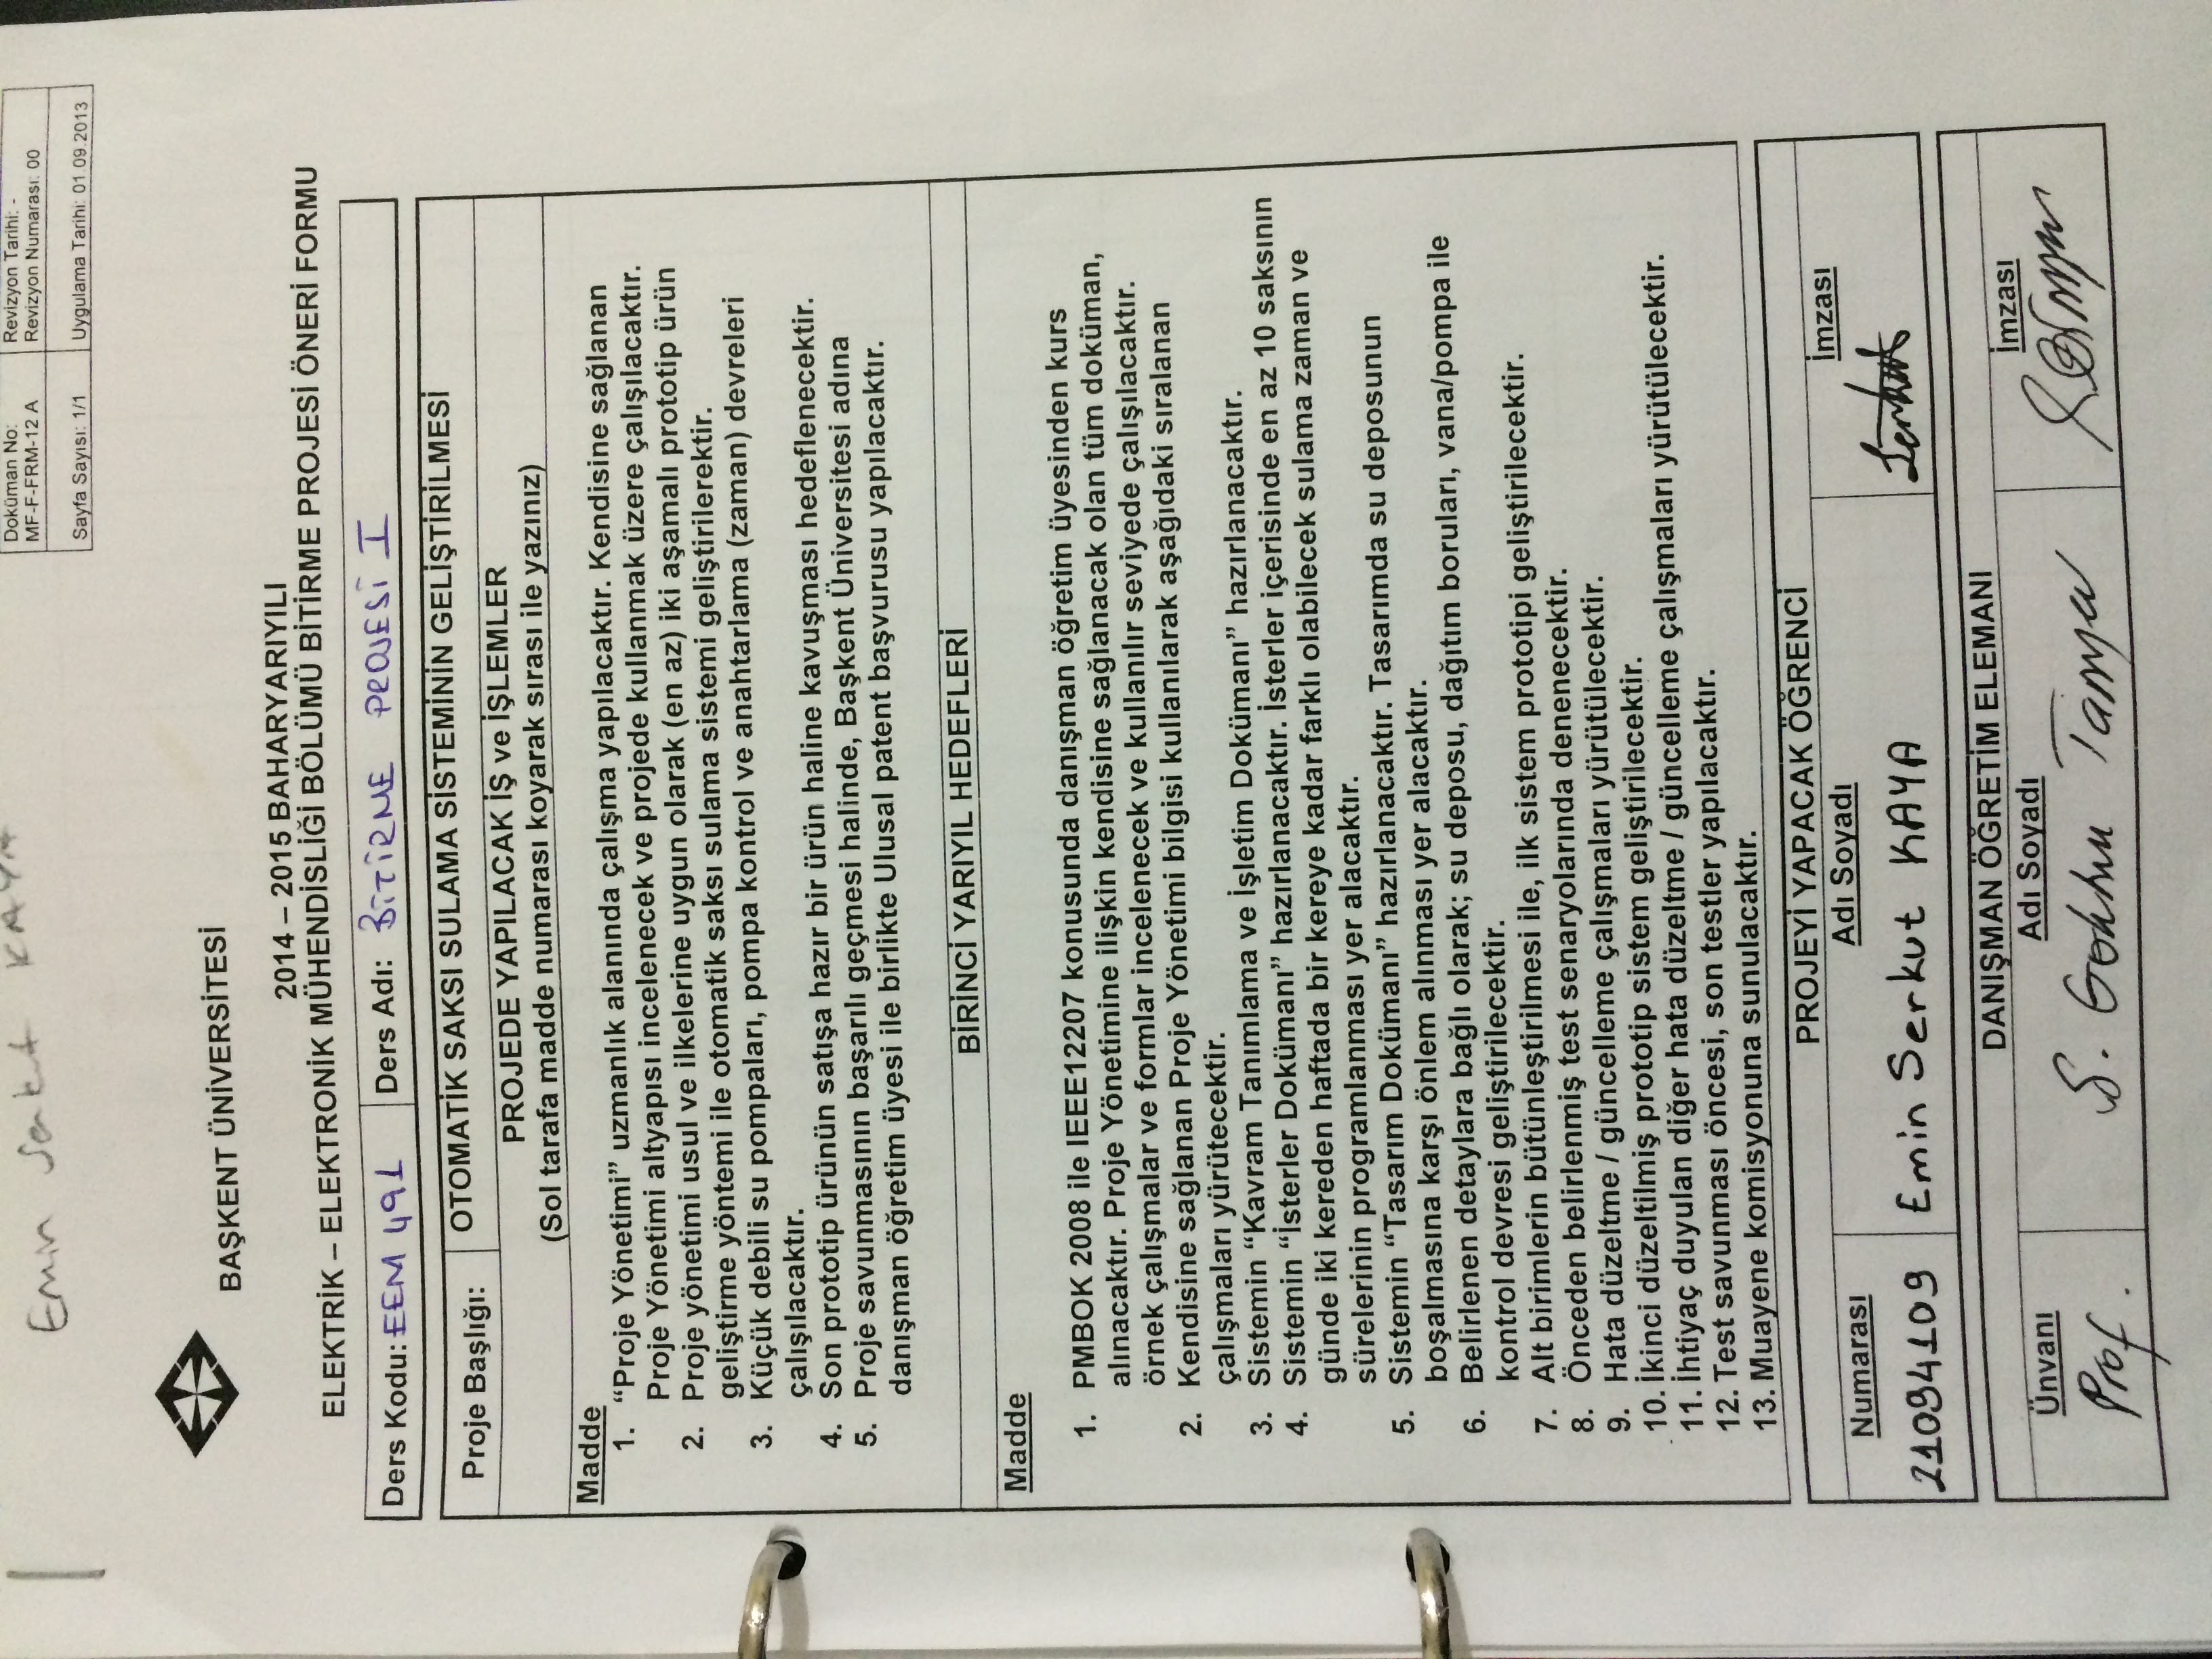 Emin Serkut KAYA
Doküman No:
MF-F-FRM-12 A
Revizyon Tarihi: -
Revizyon Numarası: 00
Sayfa Sayısı: 1/1
Uygulama Tarihi: 01.09.2013
BAŞKENT ÜNİVERSİTESİ
2014 – 2015 BAHARYARIYILI
ELEKTRİK – ELEKTRONİK MÜHENDİSLİĞİ BÖLÜMÜ BİTİRME PROJESİ ÖNERİ FORMU
Ders Kodu: EEM 491
Ders Adı: BİTİRME PROJESİ I
Proje Başlığı:
OTOMATİK SAKSI SULAMA SİSTEMİNİN GELİŞTİRİLMESİ
PROJEDE YAPILACAK İŞ ve İŞLEMLER
(Sol tarafa madde numarası koyarak sırası ile yazınız)
Madde
1. “Proje Yönetimi” uzmanlık alanında çalışma yapılacaktır. Kendisine sağlanan
Proje Yönetimi altyapısı incelenecek ve projede kullanmak üzere çalışılacaktır.
2. Proje yönetimi usul ve ilkelerine uygun olarak (en az) iki aşamalı prototip ürün
geliştirme yöntemi ile otomatik saksı sulama sistemi geliştirilerektir.
3. Küçük debili su pompaları, pompa kontrol ve anahtarlama (zaman) devreleri
çalışılacaktır.
4. Son prototip ürünün satışa hazır bir ürün haline kavuşması hedeflenecektir.
5. Proje savunmasının başarılı geçmesi halinde, Başkent Üniversitesi adına
danışman öğretim üyesi ile birlikte Ulusal patent başvurusu yapılacaktır.
BİRİNCİ YARIYIL HEDEFLERİ
Madde
1. PMBOK 2008 ile IEEE12207 konusunda danışman öğretim üyesinden kurs
alınacaktır. Proje Yönetimine ilişkin kendisine sağlanacak olan tüm doküman,
örnek çalışmalar ve formlar incelenecek ve kullanılır seviyede çalışılacaktır.
2. Kendisine sağlanan Proje Yönetimi bilgisi kullanılarak aşağıdaki sıralanan
çalışmaları yürütecektir.
3. Sistemin “Kavram Tanımlama ve İşletim Dokümanı” hazırlanacaktır.
4. Sistemin “İsterler Dokümanı” hazırlanacaktır. İsterler içerisinde en az 10 saksının
günde iki kereden haftada bir kereye kadar farklı olabilecek sulama zaman ve
sürelerinin programlanması yer alacaktır.
5. Sistemin “Tasarım Dokümanı” hazırlanacaktır. Tasarımda su deposunun
boşalmasına karşı önlem alınması yer alacaktır.
6. Belirlenen detaylara bağlı olarak; su deposu, dağıtım boruları, vana/pompa ile
kontrol devresi geliştirilecektir.
7. Alt birimlerin bütünleştirilmesi ile, ilk sistem prototipi geliştirilecektir.
8. Önceden belirlenmiş test senaryolarında denenecektir.
9. Hata düzeltme / güncelleme çalışmaları yürütülecektir.
10. İkinci düzeltilmiş prototip sistem geliştirilecektir.
11. İhtiyaç duyulan diğer hata düzeltme / güncelleme çalışmaları yürütülecektir.
12. Test savunması öncesi, son testler yapılacaktır.
13. Muayene komisyonuna sunulacaktır.
PROJEYİ YAPACAK ÖĞRENCİ
Numarası
Adı Soyadı
İmzası
21094109
Emin Serkut KAYA
Serkut
DANIŞMAN ÖĞRETİM ELEMANI
Ünvanı
Adı Soyadı
İmzası
Prof.
S. Gökhun Tanyer